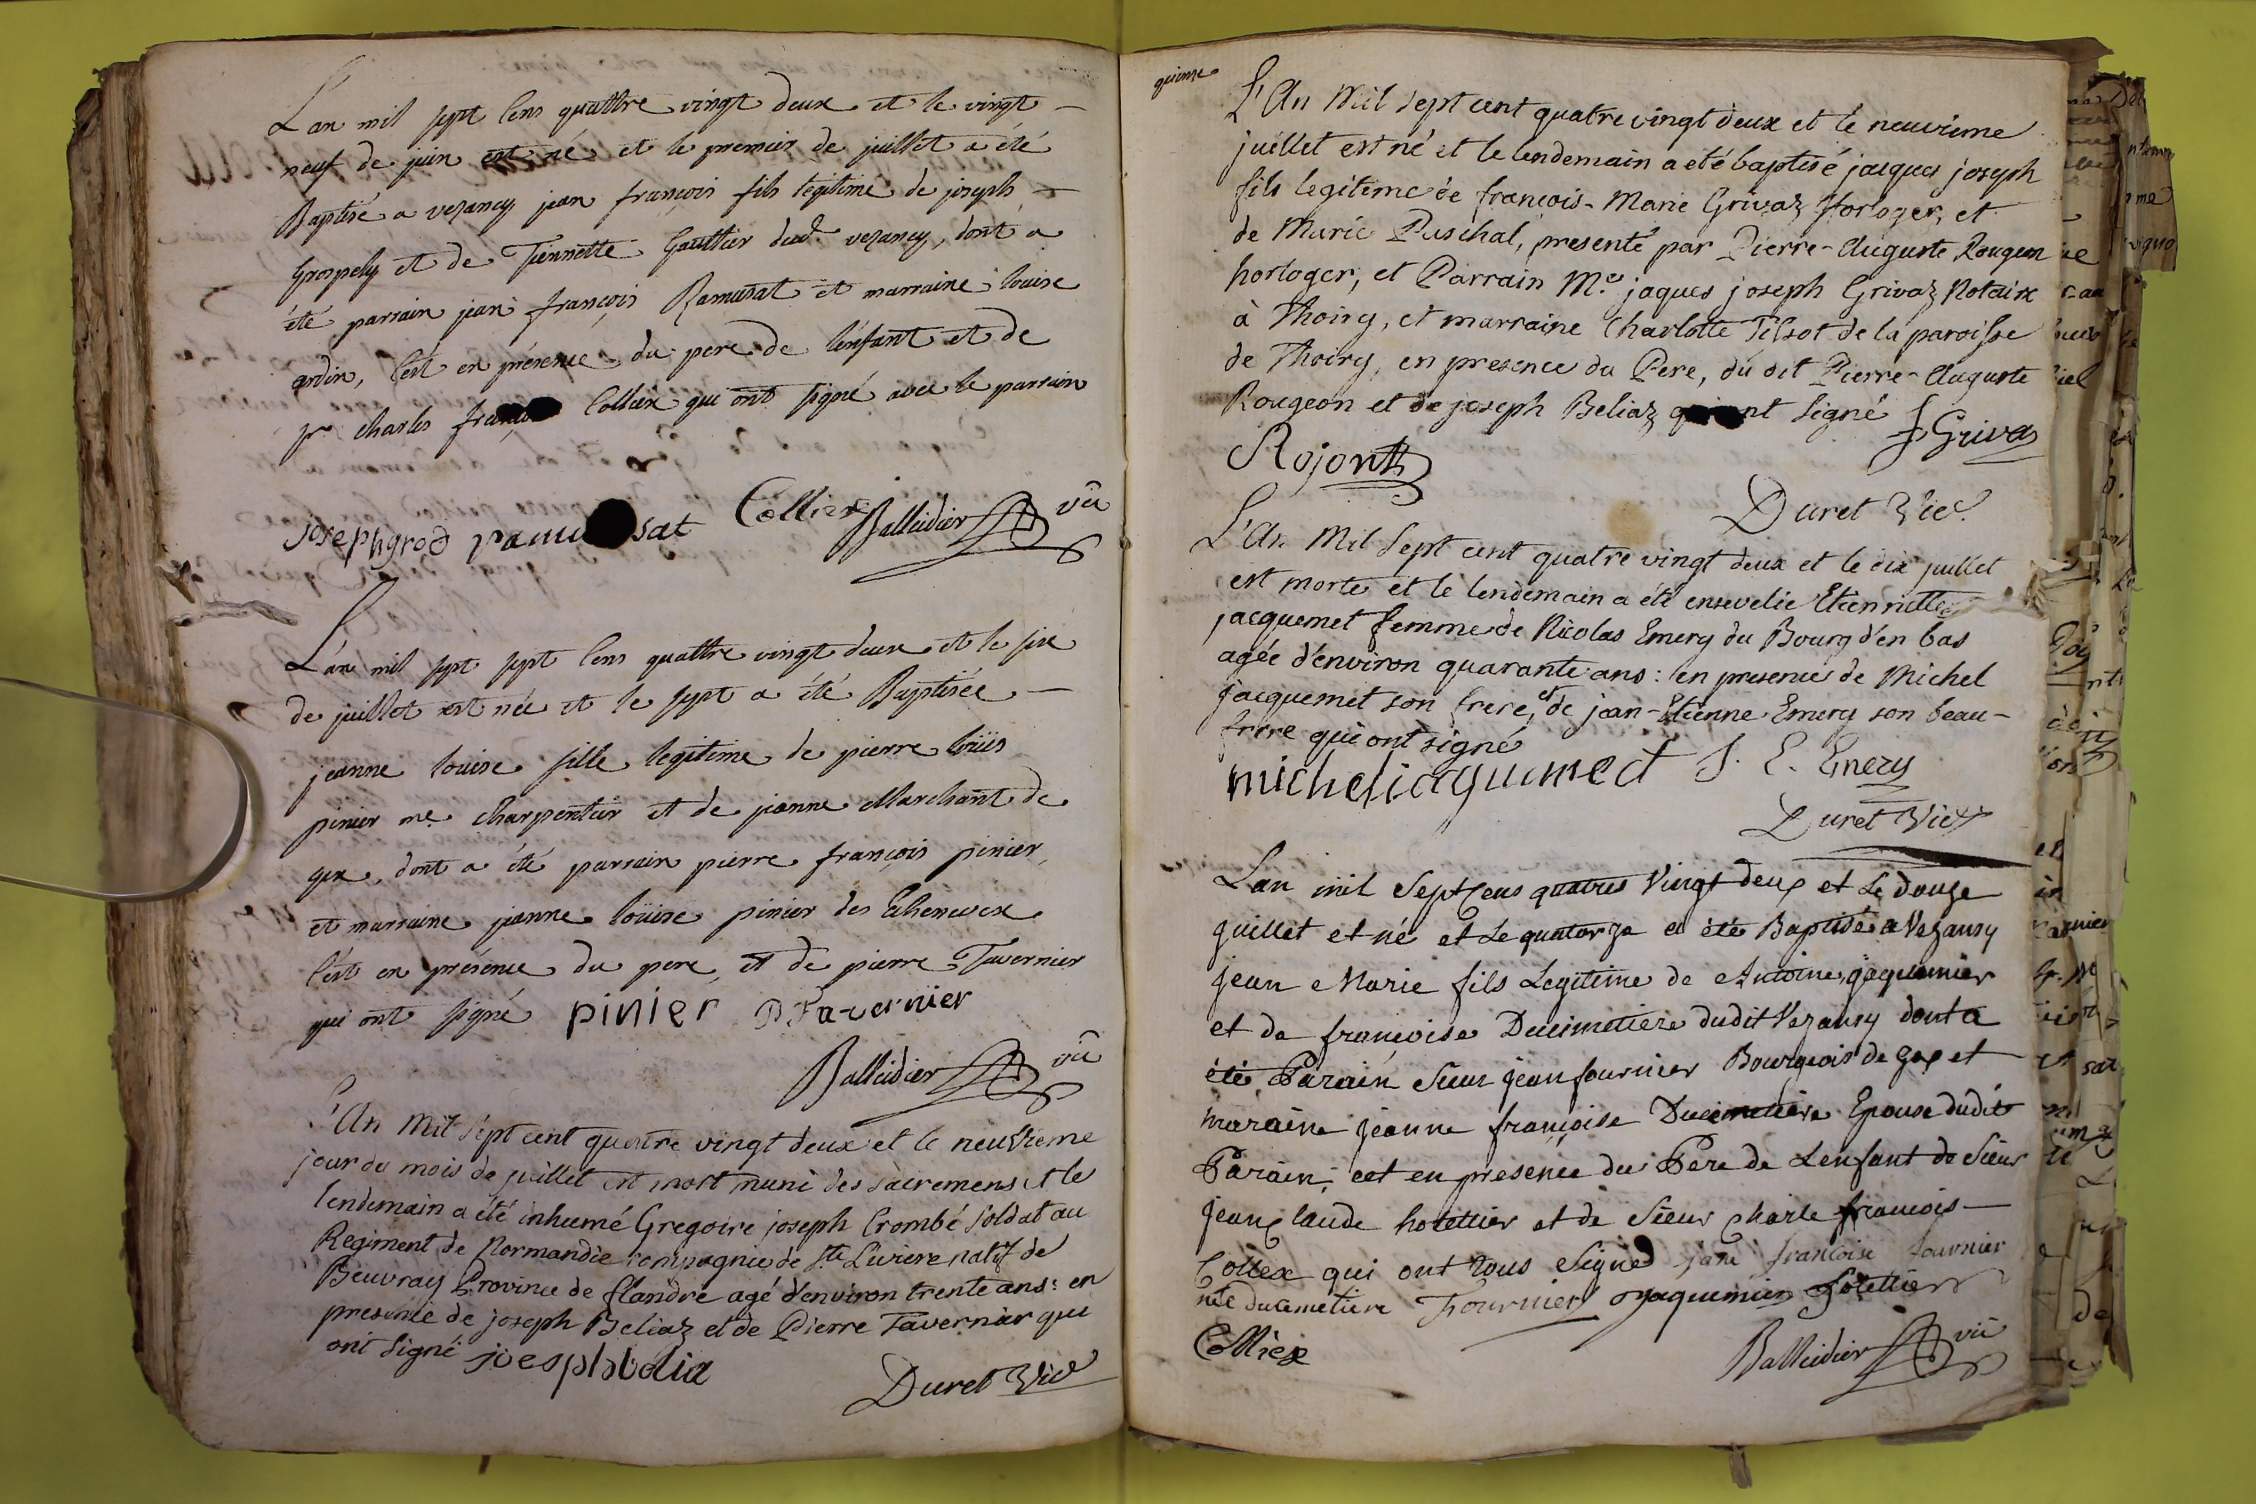 L'an mil sept cens quattre vingt deux et le vingt
neuf de juin est né et le premier de juillet a été
Baptisé a vezancy jean françois fils legitime de joseph
grospely et de Tiennette Gaultier dud. vezancy, dont a
été parrain jean françois Ramusat et marraine louise
ardin, c'est en présence du pere de l'enfant et de
Sr charles françois Colliex qui ont signé avec le parrain
joseph grod ramusat Colliex Balleidier vic
L'an mil sept sept cens quattre vingt deux et le six
de juillet est née et le sept a été Baptisée
jeanne louise fille legitime de pierre loüis
pinier me. charpentier et de jeanne Marchant de
gex, dont a été parrain pierre françois pinier,
et marraine jeanne loüise pinier des Echenevex
c'est en présence du pere, et de pierre Tavernier
qui ont signé pinier P Tavernier
Balleidier vic
L'An Mil sept cent quatre vingt deux et le neuvieme
jour du mois de juillet est mort muni des sacremens et le
lendemain a été inhumé Gregoire joseph Crombé soldat au
Regiment de Normandie compagnie de Ste Liviere natif de
Beuvray Province de flandre agé d'environ trente ans: en
presence de joseph Beliaz et de Pierre Tavernier qui
ont signé joesph belia
Duret Vic
quinze
L'An Mil sept cent quatre vingt deux et le neuvieme
juillet est né et le lendemain a eté baptisé jacques joseph
fils legitime de françois-Marie Grivaz Horloger, et
de Marie Paschal, presenté par Pierre-Auguste Rougeon
horloger, et Parrain Me. jaques joseph Grivaz Notaire
à Thoiry, et marraine Charlotte Tissot de la paroisse
de Thoiry, en presence du Pere, du dit Pierre-Auguste
Rougeon et de joseph Beliaz qui ont signé
f Griva
Rojont
Duret Vic.
L'An Mil Sept cent quatre vingt deux et le dix juillet
est morte et le lendemain a été ensevelie Etiennette
jacquemet femme de Nicolas Emery du Bourg d'en bas
agée d'environ quarante ans: en presence de Michel
jacquemet son frere, et de jean-Etienne Emery son beau-
frere qui ont signé
michel jaquemet J. E. Emery
Duret Vic
Lan mil Sept Cens quatres Vingt deux et Le douze
juillet et né et Le quatorze a été Baptisé a Vezancy
jean Marie fils Legitime de Antoine jaquemier
et de françoise Ducimetiere dudit Vezancy dont a
été Parain Sieur jean fournier Bourgeois de Gex et
maraine jeanne françoise Ducimetiere Epouse dudit
Parain; cet en presence du Pere de Lenfant de Sieur
jean Claude hotellier et de Sieur charle françois
Collex qui ont tous Signé jane francoise fournier
née ducemetiere Fournier jaquemier hotellier
Colliex
Balleidier vic